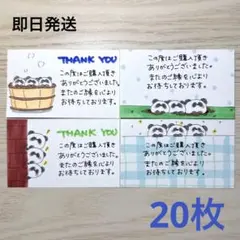 即日発送
THANK YOU
この度はご購入頂き
ありがとうございました。
またのご縁を心より
お待ちしております。
この度はご購入頂き
ありがとうございました。
またのご縁を心より
お待ちしております。
THANK YOU
この度はご購入頂き
ありがとうございました。
またのご縁を心より
お待ちしております。
この度はご購入頂き
ありがとうございました。
またのご縁を心より
お待ちしております。
20枚